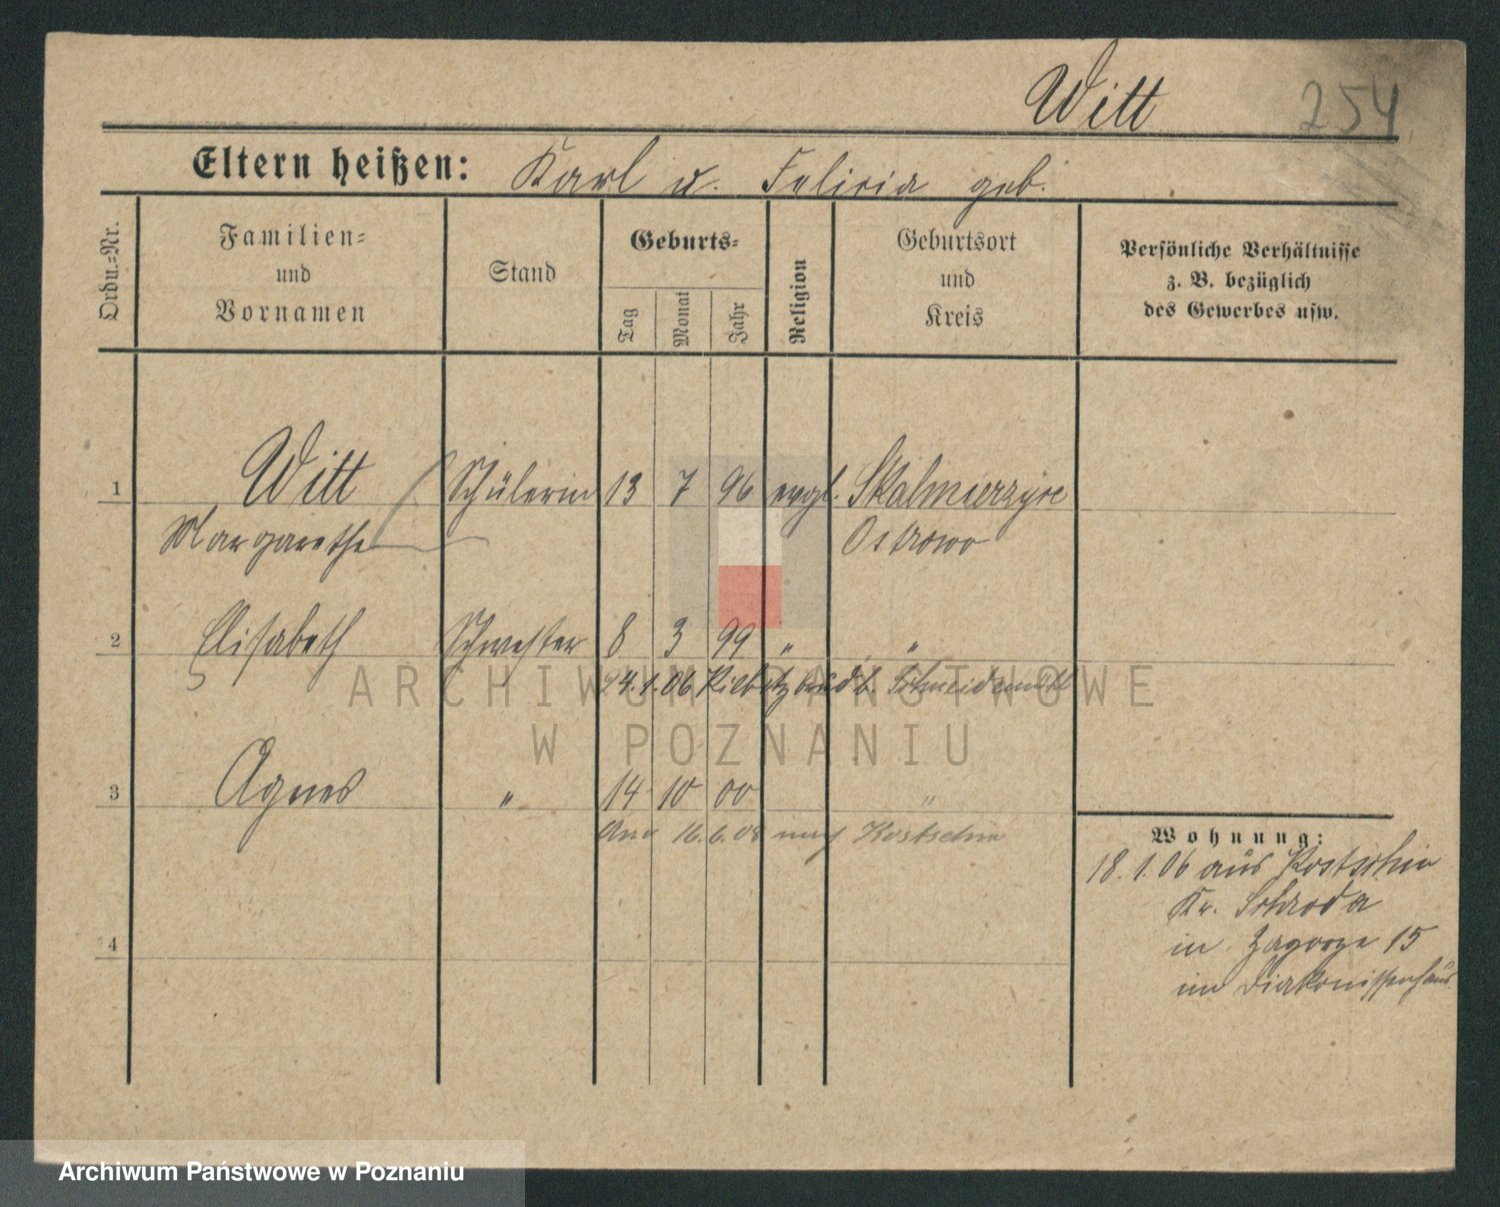 Witt 254
Eltern heißen: Karl u. Felicia geb.
Ordn.-Nr.
Familien-
und
Vornamen
Stand
Geburts-
Tag
Monat
Jahr
Religion
Geburtsort
und
Kreis
Persönliche Verhältnisse
z. B. bezüglich
des Gewerbes usw.
1 Witt Schülerin 13 7 96 evgl. Skalmierzyce
Margarethe Ostrowo
2 Elisabeth Schwester 8 3 99 " "
24.1.06 b. Schneidemühl
3 Agnes " 14 10 00 "
16.6.08 nach Kostschin
4
Wohnung:
18.1.06 aus Kostschin
Kr. Schroda
in Zagorze 15
im Diakonissenhaus
ARCHIWUM PAŃSTWOWE
W POZNANIU
Archiwum Państwowe w Poznaniu